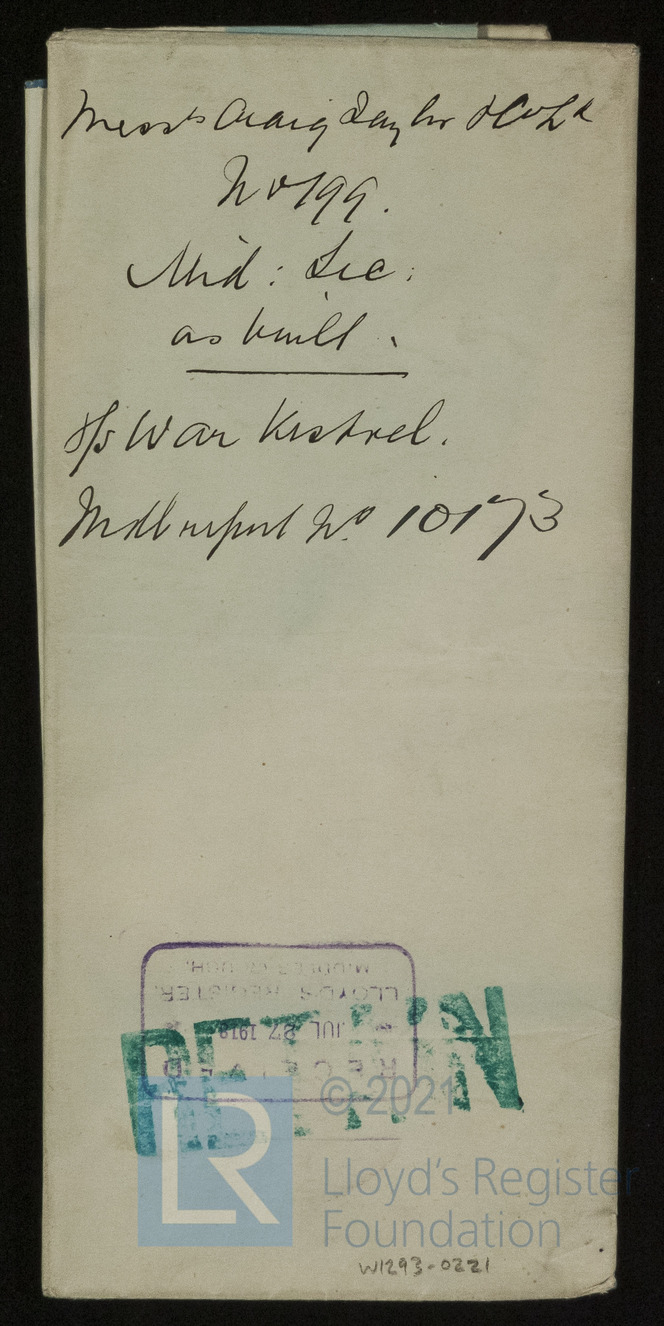 Messrs Craig Taylor & Co Ld
No 199.
Mid: Sec:
as built.
s/s War Kestrel.
Mdbro report No 10173
RECEIVED
JUL 27 1918
LLOYD'S REGISTER,
MIDDLESBROUGH.
RETAIN
LR
© 2021
Lloyd's Register
Foundation
W1293-0221